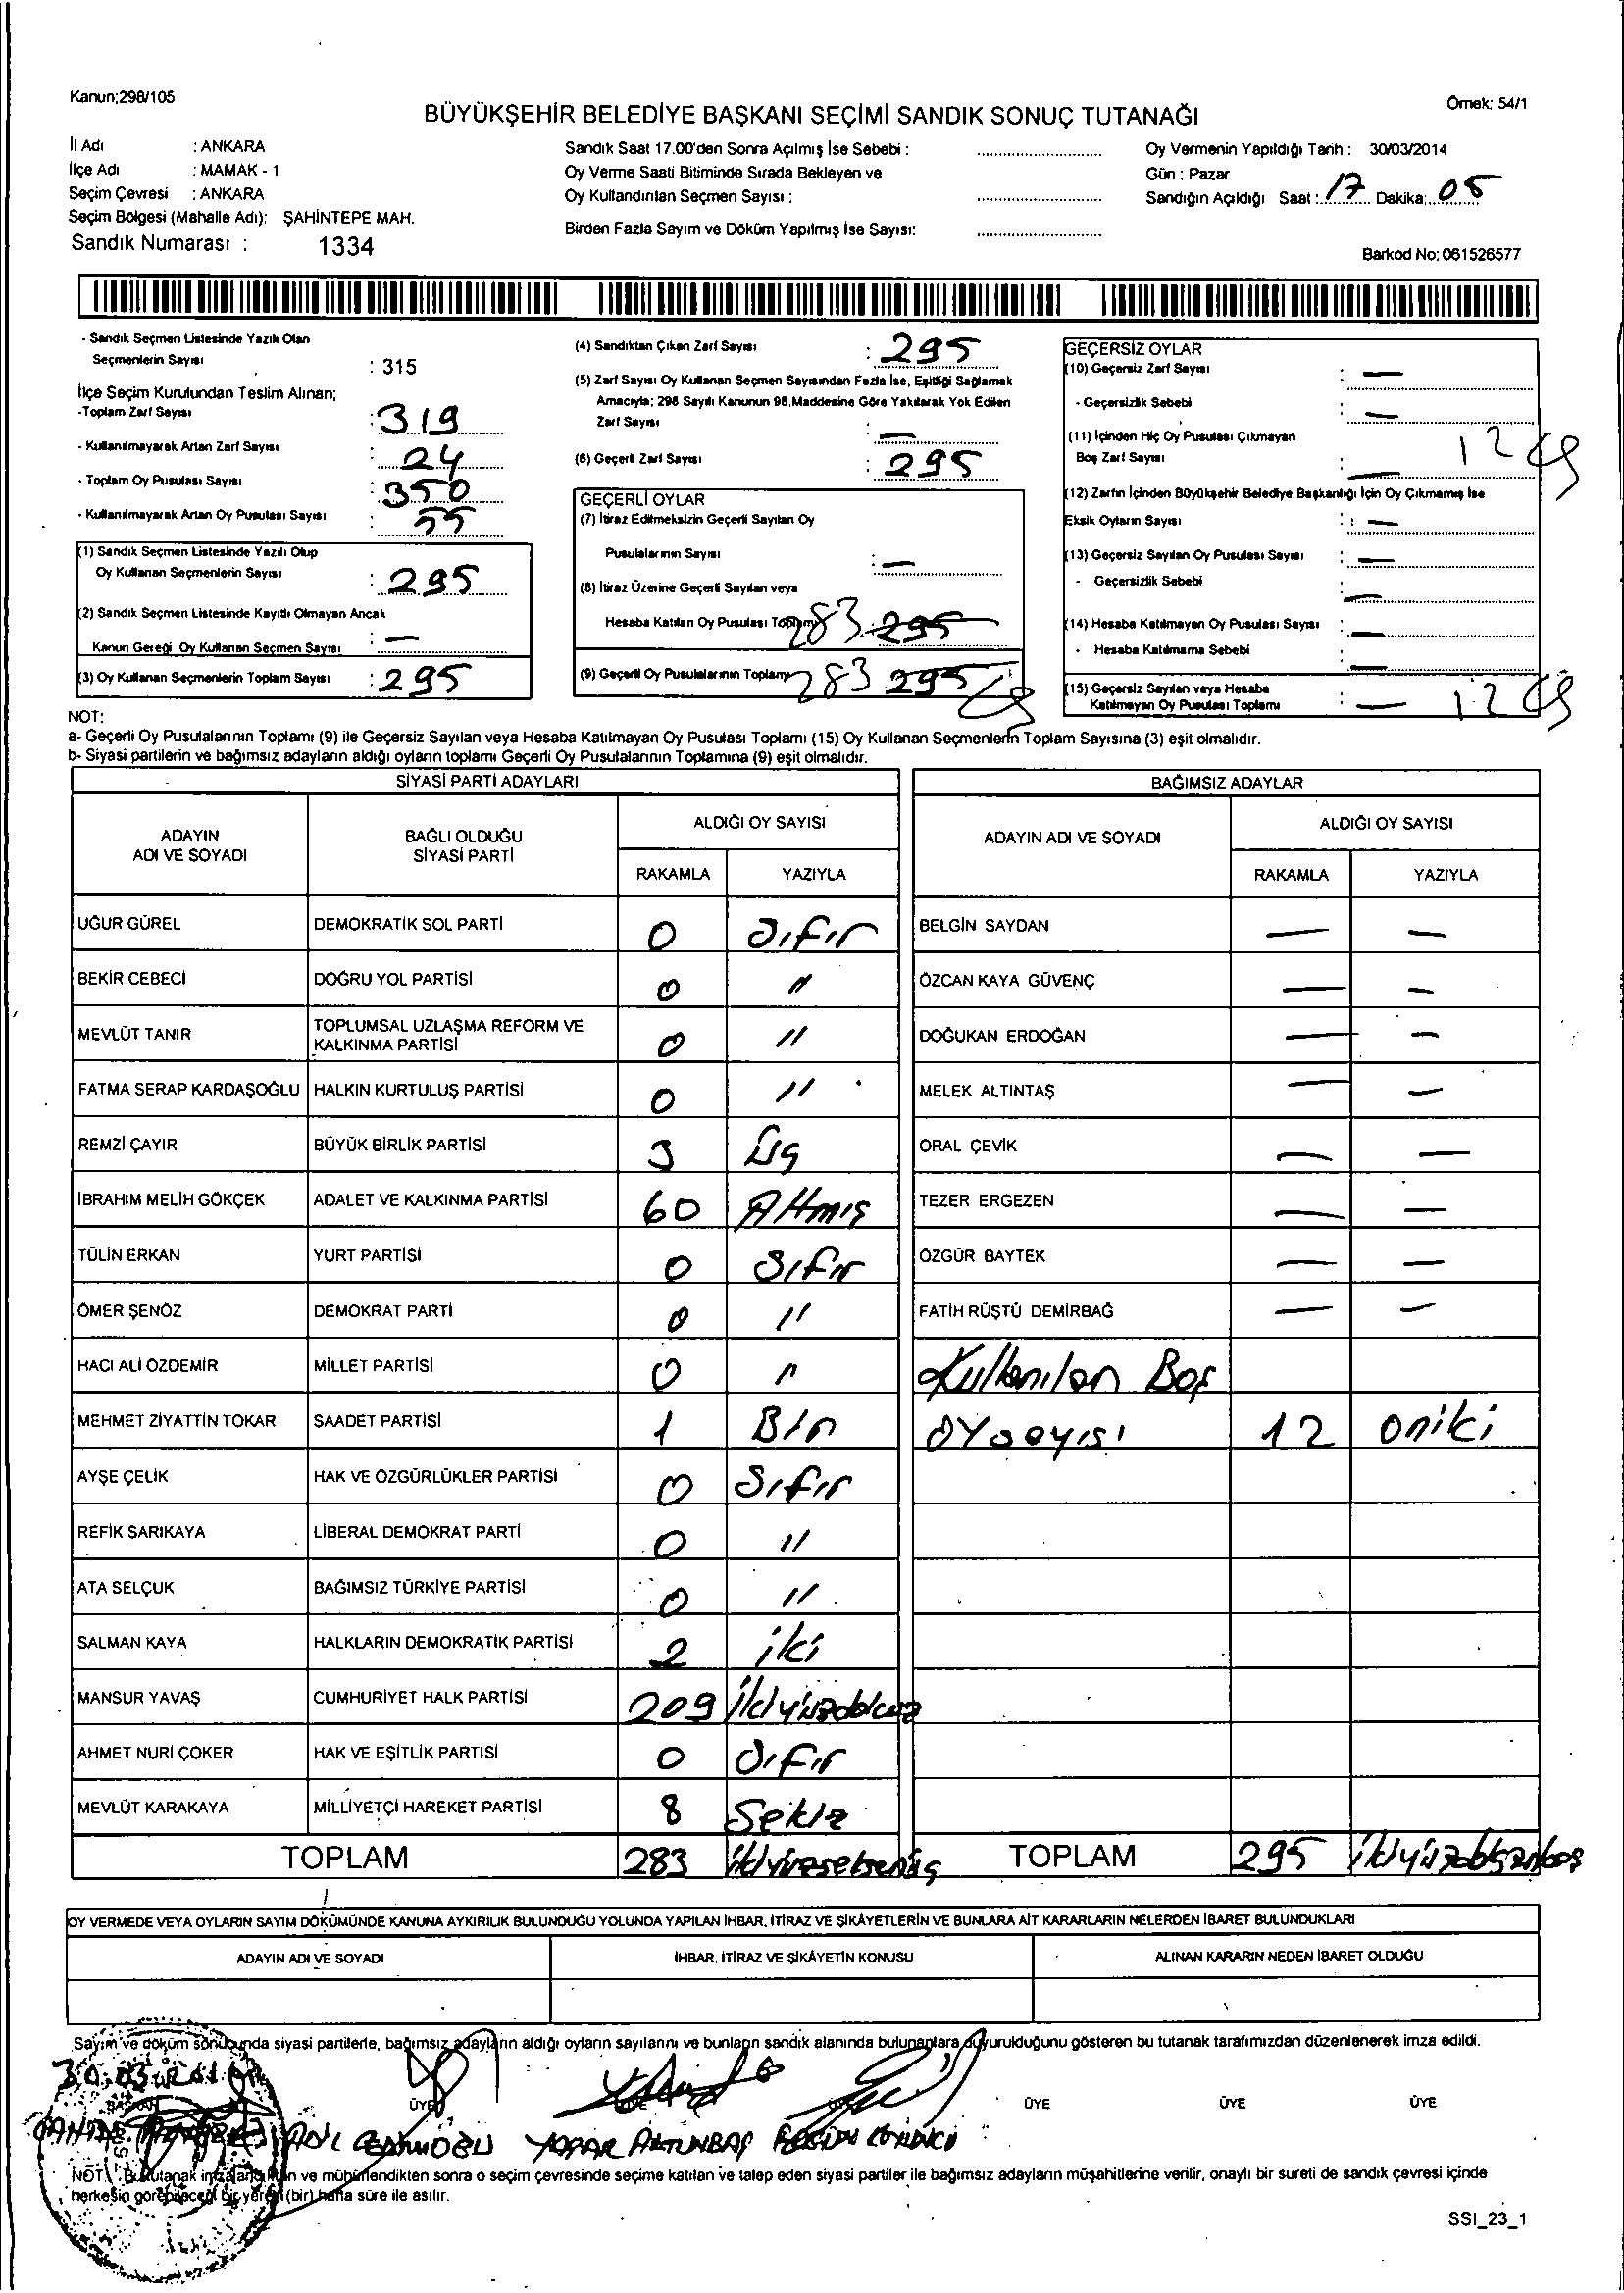 Kanun;298/105
Örnek: 54/1
BÜYÜKŞEHİR BELEDİYE BAŞKANI SEÇİMİ SANDIK SONUÇ TUTANAĞI
İl Adı : ANKARA
İlçe Adı : MAMAK - 1
Seçim Çevresi : ANKARA
Seçim Bölgesi (Mahalle Adı); ŞAHİNTEPE MAH.
Sandık Numarası : 1334
Sandık Saat 17.00'den Sonra Açılmış İse Sebebi :
Oy Verme Saati Bitiminde Sırada Bekleyen ve
Oy Kullandırılan Seçmen Sayısı :
Birden Fazla Sayım ve Döküm Yapılmış İse Sayısı:
Oy Vermenin Yapıldığı Tarih : 30/03/2014
Gün : Pazar
Sandığın Açıldığı Saat : 17 Dakika: 05
Barkod No: 061526577
- Sandık Seçmen Listesinde Yazılı Olan
Seçmenlerin Sayısı : 315
İlçe Seçim Kurulundan Teslim Alınan;
-Toplam Zarf Sayısı : 319
- Kullanılmayarak Artan Zarf Sayısı : 24
- Toplam Oy Pusulası Sayısı : 350
- Kullanılmayarak Artan Oy Pusulası Sayısı : 55
(1) Sandık Seçmen Listesinde Yazılı Olup
Oy Kullanan Seçmenlerin Sayısı : 295
(2) Sandık Seçmen Listesinde Kayıtlı Olmayan Ancak
Kanun Gereği Oy Kullanan Seçmen Sayısı : —
(3) Oy Kullanan Seçmenlerin Toplam Sayısı : 295
(4) Sandıktan Çıkan Zarf Sayısı : 295
(5) Zarf Sayısı Oy Kullanan Seçmen Sayısından Fazla İse, Eşitliği Sağlamak
Amacıyla; 298 Sayılı Kanunun 98.Maddesine Göre Yakılarak Yok Edilen
Zarf Sayısı : —
(6) Geçerli Zarf Sayısı : 295
GEÇERLİ OYLAR
(7) İtiraz Edilmeksizin Geçerli Sayılan Oy
Pusulalarının Sayısı : —
(8) İtiraz Üzerine Geçerli Sayılan veya
Hesaba Katılan Oy Pusulası Toplamı 283 295
(9) Geçerli Oy Pusulalarının Toplamı 283 295
GEÇERSİZ OYLAR
(10) Geçersiz Zarf Sayısı : —
- Geçersizlik Sebebi : —
(11) İçinden Hiç Oy Pusulası Çıkmayan
Boş Zarf Sayısı : — 12
(12) Zarfın İçinden Büyükşehir Belediye Başkanlığı İçin Oy Çıkmamış İse
Eksik Oyların Sayısı : —
(13) Geçersiz Sayılan Oy Pusulası Sayısı : —
- Geçersizlik Sebebi —
(14) Hesaba Katılmayan Oy Pusulası Sayısı : —
- Hesaba Katılmama Sebebi —
(15) Geçersiz Sayılan veya Hesaba
Katılmayan Oy Pusulası Toplamı : — 12
NOT:
a- Geçerli Oy Pusulalarının Toplamı (9) ile Geçersiz Sayılan veya Hesaba Katılmayan Oy Pusulası Toplamı (15) Oy Kullanan Seçmenlerin Toplam Sayısına (3) eşit olmalıdır.
b- Siyasi partilerin ve bağımsız adayların aldığı oyların toplamı Geçerli Oy Pusulalarının Toplamına (9) eşit olmalıdır.
SİYASİ PARTİ ADAYLARI
ADAYIN ADI VE SOYADI BAĞLI OLDUĞU SİYASİ PARTİ ALDIĞI OY SAYISI
RAKAMLA YAZIYLA
UĞUR GÜREL DEMOKRATİK SOL PARTİ 0 Sıfır
BEKİR CEBECİ DOĞRU YOL PARTİSİ 0 "
MEVLÜT TANIR TOPLUMSAL UZLAŞMA REFORM VE KALKINMA PARTİSİ 0 "
FATMA SERAP KARDAŞOĞLU HALKIN KURTULUŞ PARTİSİ 0 "
REMZİ ÇAYIR BÜYÜK BİRLİK PARTİSİ 3 Üç
İBRAHİM MELİH GÖKÇEK ADALET VE KALKINMA PARTİSİ 60 Altmış
TÜLİN ERKAN YURT PARTİSİ 0 Sıfır
ÖMER ŞENÖZ DEMOKRAT PARTİ 0 "
HACI ALİ ÖZDEMİR MİLLET PARTİSİ 0 "
MEHMET ZİYATTİN TOKAR SAADET PARTİSİ 1 Bir
AYŞE ÇELİK HAK VE ÖZGÜRLÜKLER PARTİSİ 0 Sıfır
REFİK SARIKAYA LİBERAL DEMOKRAT PARTİ 0 "
ATA SELÇUK BAĞIMSIZ TÜRKİYE PARTİSİ 0 "
SALMAN KAYA HALKLARIN DEMOKRATİK PARTİSİ 2 iki
MANSUR YAVAŞ CUMHURİYET HALK PARTİSİ 209 ikiyüzdokuz
AHMET NURİ ÇOKER HAK VE EŞİTLİK PARTİSİ 0 Sıfır
MEVLÜT KARAKAYA MİLLİYETÇİ HAREKET PARTİSİ 8 Sekiz
TOPLAM 283 ikiyüzseksenüç
BAĞIMSIZ ADAYLAR
ADAYIN ADI VE SOYADI ALDIĞI OY SAYISI
RAKAMLA YAZIYLA
BELGİN SAYDAN — —
ÖZCAN KAYA GÜVENÇ — —
DOĞUKAN ERDOĞAN — —
MELEK ALTINTAŞ — —
ORAL ÇEVİK — —
TEZER ERGEZEN — —
ÖZGÜR BAYTEK — —
FATİH RÜŞTÜ DEMİRBAĞ — —
Kullanılan Boş
oy sayısı 12 oniki
TOPLAM 295 ikiyüzdoksanbeş
OY VERMEDE VEYA OYLARIN SAYIM DÖKÜMÜNDE KANUNA AYKIRILIK BULUNDUĞU YOLUNDA YAPILAN İHBAR, İTİRAZ VE ŞİKÂYETLERİN VE BUNLARA AİT KARARLARIN NELERDEN İBARET BULUNDUKLARI
ADAYIN ADI VE SOYADI İHBAR, İTİRAZ VE ŞİKÂYETİN KONUSU ALINAN KARARIN NEDEN İBARET OLDUĞU
Sayım ve döküm sonucunda siyasi partilerle, bağımsız adayların aldığı oyların sayılarını ve bunların sandık alanında bulunanlara duyurulduğunu gösteren bu tutanak tarafımızdan düzenlenerek imza edildi.
30.03.2014
BAŞKAN ÜYE ÜYE ÜYE ÜYE
YAŞAR ALTUNBAŞ
NOT: Bu tutanak imzalandıktan ve mühürlendikten sonra o seçim çevresinde seçime katılan ve talep eden siyasi partiler ile bağımsız adayların müşahitlerine verilir, onaylı bir sureti de sandık çevresi içinde
herkesin görebileceği bir yere (bir) hafta süre ile asılır.
SSI_23_1